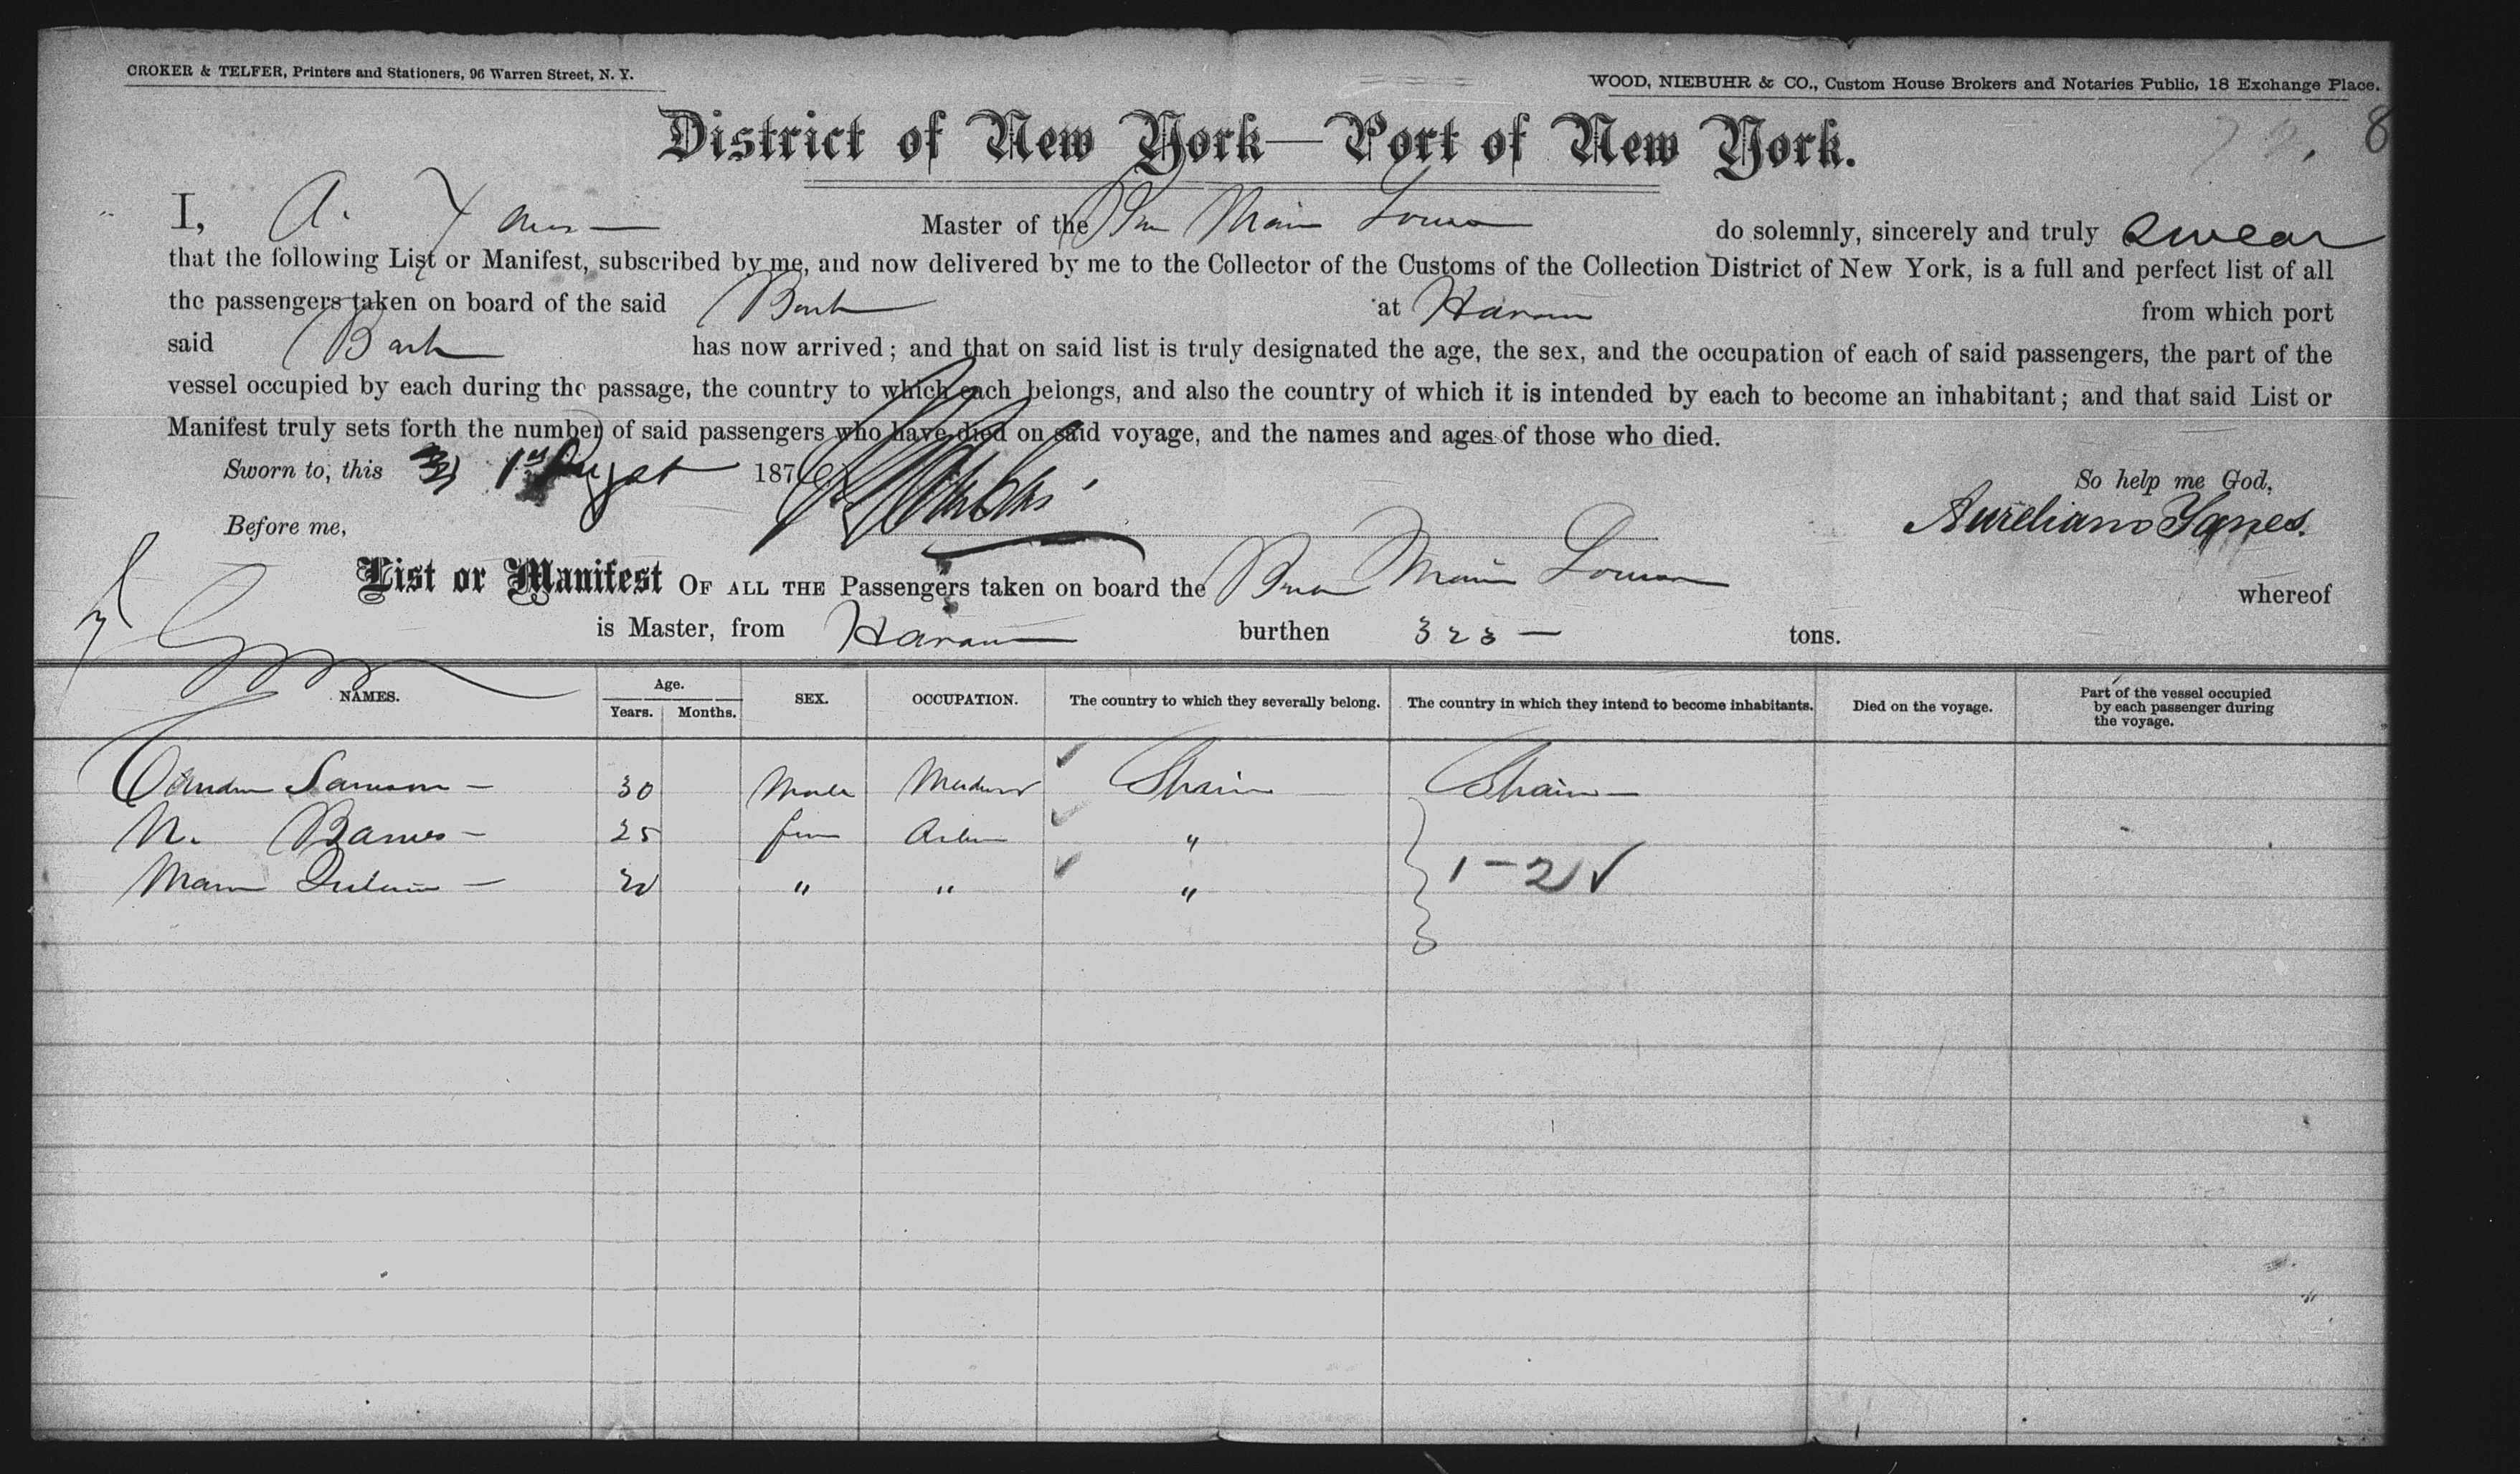 CROKER & TELFER, Printers and Stationers, 96 Warren Street, N. Y.
WOOD, NIEBUHR & CO., Custom House Brokers and Notaries Public, 18 Exchange Place.
8
District of New York—Port of New York.
I, A. Master of the do solemnly, sincerely and truly swear
that the following List or Manifest, subscribed by me, and now delivered by me to the Collector of the Customs of the Collection District of New York, is a full and perfect list of all
the passengers taken on board of the said Bark at Havana from which port
said Bark has now arrived; and that on said list is truly designated the age, the sex, and the occupation of each of said passengers, the part of the
vessel occupied by each during the passage, the country to which each belongs, and also the country of which it is intended by each to become an inhabitant; and that said List or
Manifest truly sets forth the number of said passengers who have died on said voyage, and the names and ages of those who died.
Sworn to, this 1st August 1876 So help me God,
Before me, Aureliano Yanes.
List or Manifest OF ALL THE Passengers taken on board the whereof
is Master, from Havana burthen 323 — tons.
NAMES. Age. Years. Months. SEX. OCCUPATION. The country to which they severally belong. The country in which they intend to become inhabitants. Died on the voyage. Part of the vessel occupied by each passenger during the voyage.
30 Male Spain Spain —
N. 25 fem "
" " " 1-2 ✓